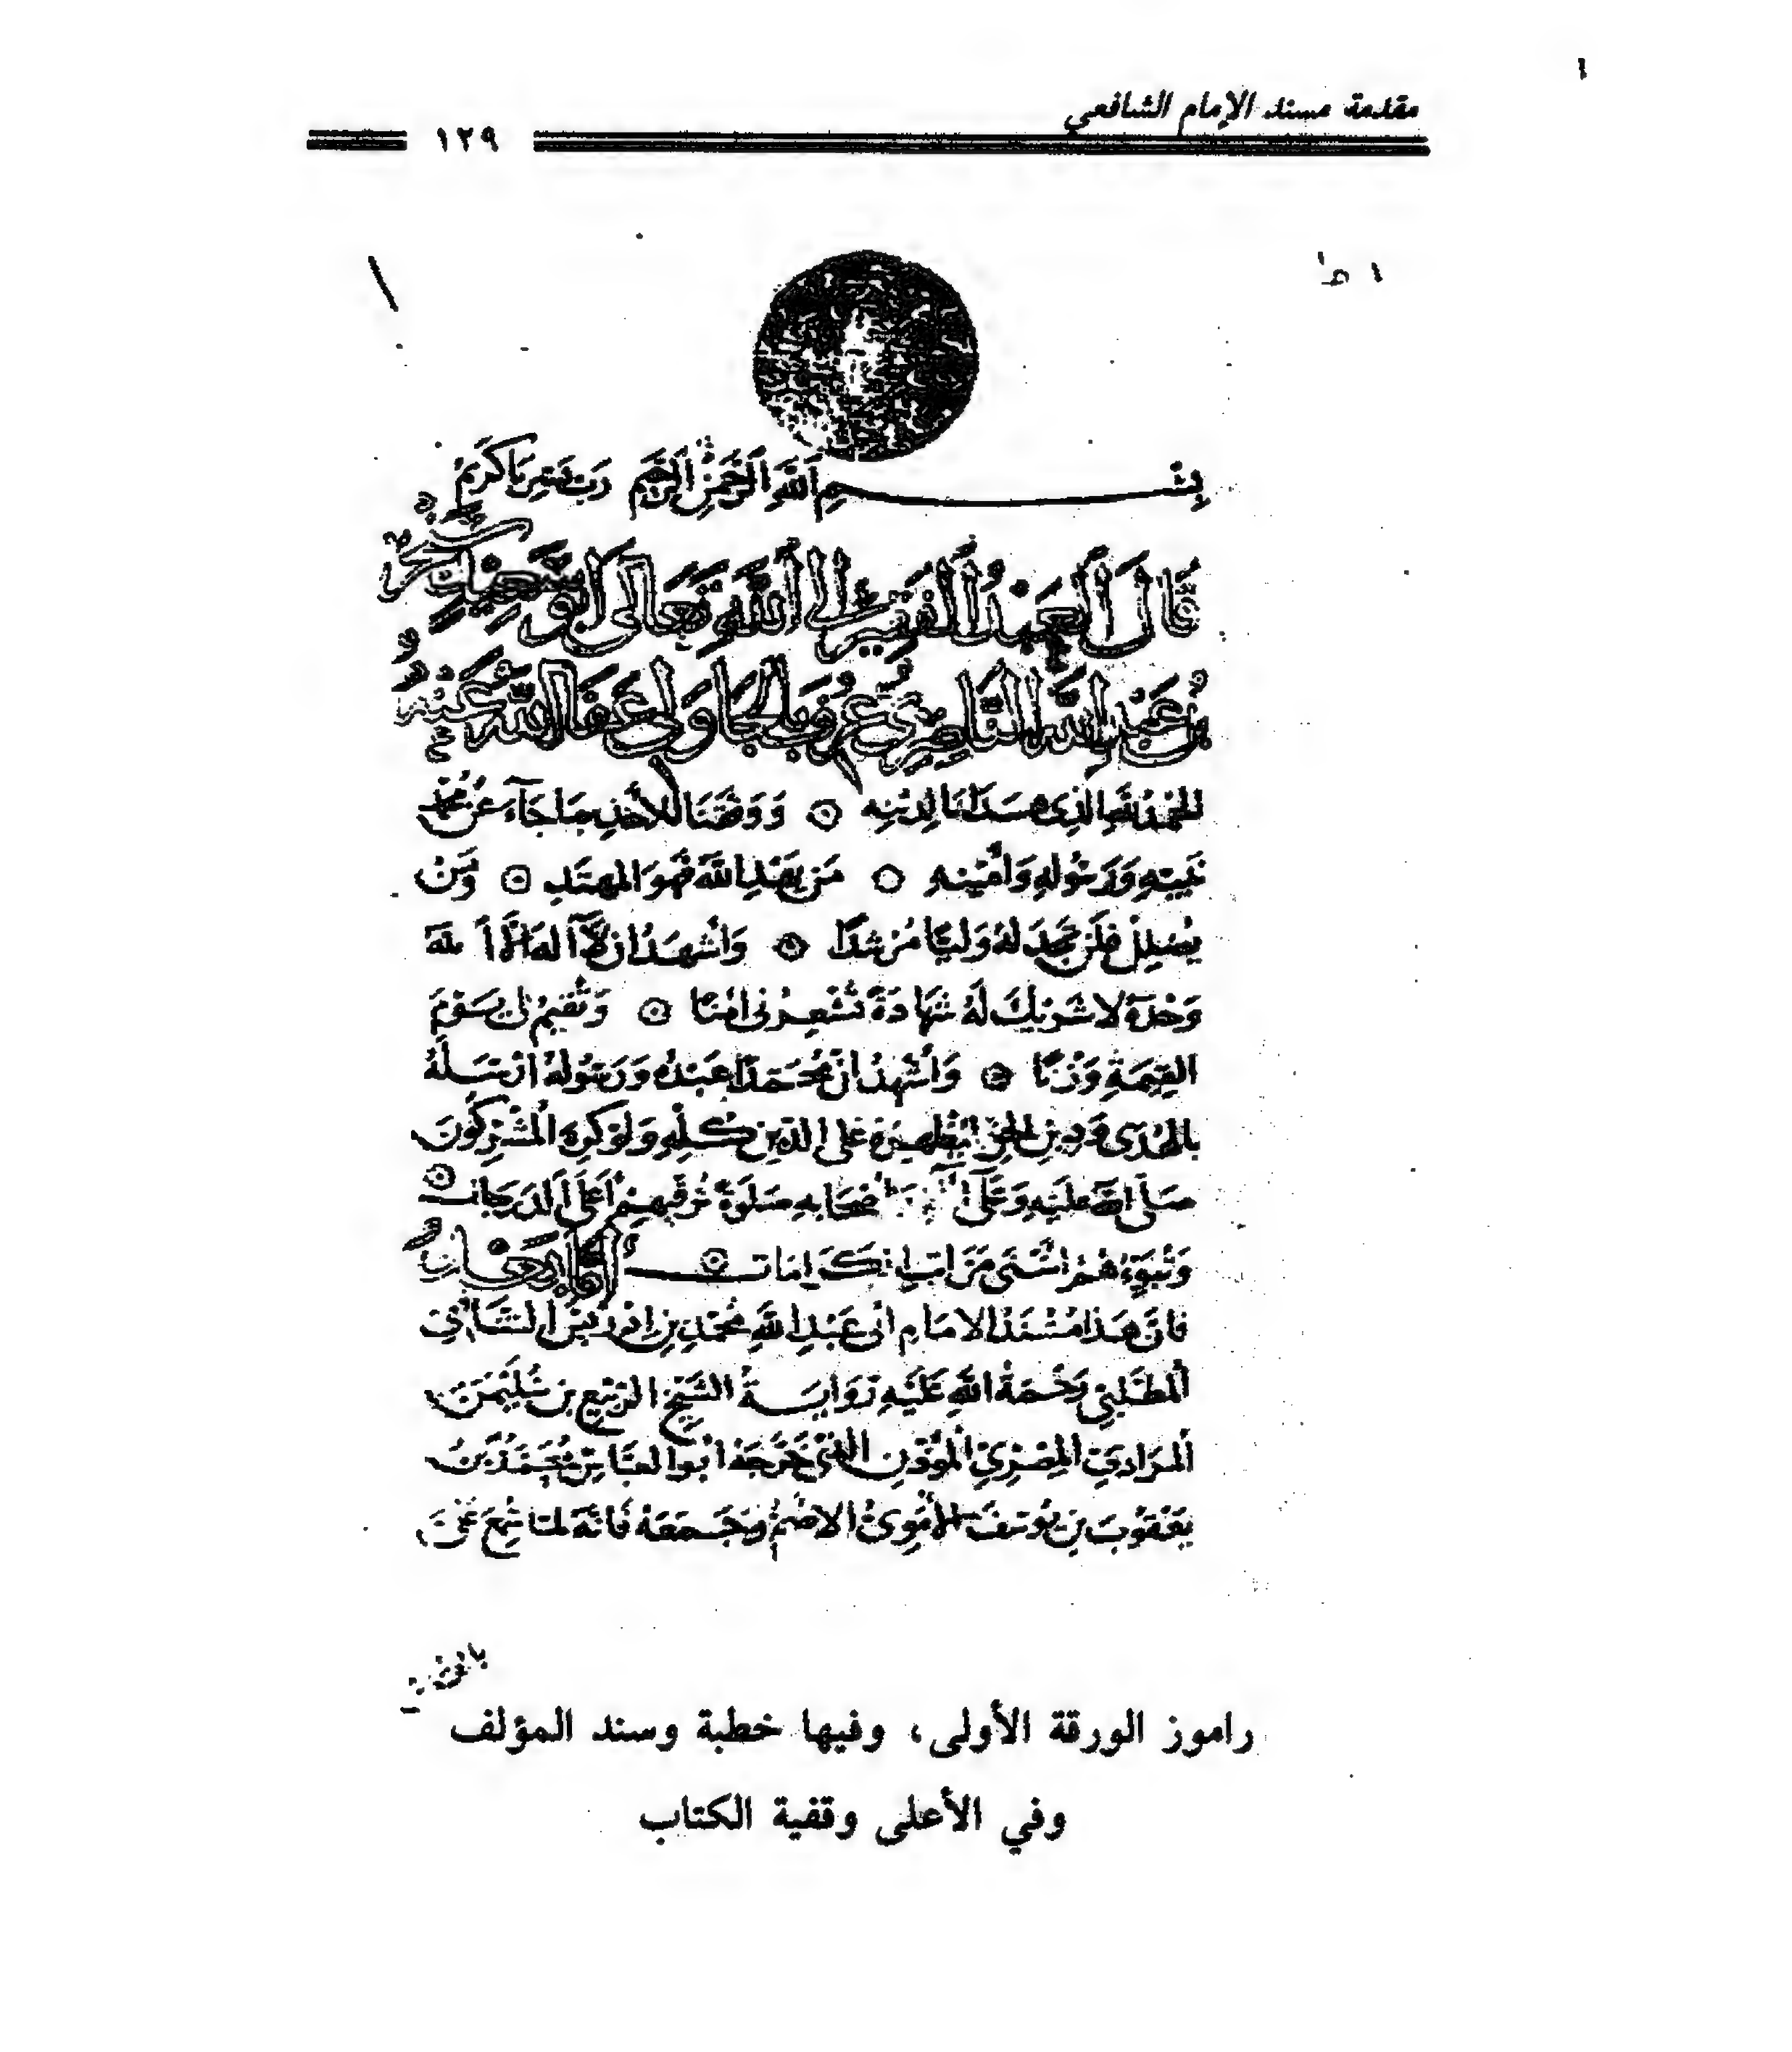 مقدمة مسند الإمام الشافعي
١٢٩
١ ط
بسم اللهِ الرَّحْمَنِ الرَّحِيمِ رَبِّ يَسِّر يَا كَرِيمُ
قَالَ العَبْدُ الفَقِيرُ إلى اللهِ تَعَالَى أبُو سَعِيد سَنْجَرُ
بنُ عَبْدِ اللهِ النَّاصِرِيُّ عُرِفَ بِالجَاوَلِي عَفَا اللهُ عَنْهُ
الحَمْدُ للهِ الذِي هَدَانَا لِدِينِهِ ۞ وَوَفَّقَنَا لِلأَخْذِ بِمَا جَآءَ عَنْ مُحَمَّدٍ
نَبِيِّهِ وَرَسُولِهِ وَأَمِينِهِ ۞ مَن يَهْدِ اللهُ فَهُوَ المُهتَدِ ۞ وَمَنْ
يُضْلِلْ فَلَن تَجِدَ لَهُ وَلِيًّا مُرْشِدًا ۞ وَأَشْهَدُ ان لَّآ الهَ الَّا اللهُ
وَحْدَهُ لا شَرِيكَ لَهُ شَهَادَةً تُشْعِرُنِي امْنًا ۞ وَتُقِيمُ لِي يَوْمَ
القِيمَةِ وَزْنًا ۞ وَأَشْهَدُ انَّ مُحَمَّدًا عَبْدُهُ وَرَسُولُهُ ارْسَلَهُ
بِالهُدَى وَدِينِ الحَقِّ لِيُظْهِرَهُ عَلَى الدِّينِ كُلِّهِ وَلَوْ كَرِهَ المُشْرِكُونَ
صَلَّى اللهُ عَلَيْهِ وَعَلَى آلِهِ وَاصْحَابِهِ صَلَوةً تُرَقِّيهِمْ أَعْلَى الدَرَجَاتِ ۞
وَتُبَوِّءُهُمْ اسْنَى مَرَاتِبِ الكَرَامَاتِ ۞ أَمَّا بَعْدُ
فَانَّ هَذَا مُسْنَدُ الامَامِ ابي عَبْدِ اللهِ مُحَمَّدِ بنِ إدْرِيسَ الشَّافِعِيِّ
المُطَّلِبِيِّ رَحْمَةُ اللهِ عَلَيْهِ رِوَايَةُ الشَّيْخِ الرَّبِيعِ بنِ سُلَيْمَنَ
المُرَادِيِّ المِصْرِيِّ المُؤَذِّنِ الذي خَرَّجَهُ ابُو العَبَّاسِ مُحَمَّدُ بْنُ
يَعْقُوبَ بنِ يُوسُفَ الأُمَوِيُّ الاصَمُّ وَجَمَعَهُ فَانَّهُ لمَّا سُمِعَ عَنْ
راموز الورقة الأولى، وفيها خطبة وسند المؤلف
وفي الأعلى وقفية الكتاب